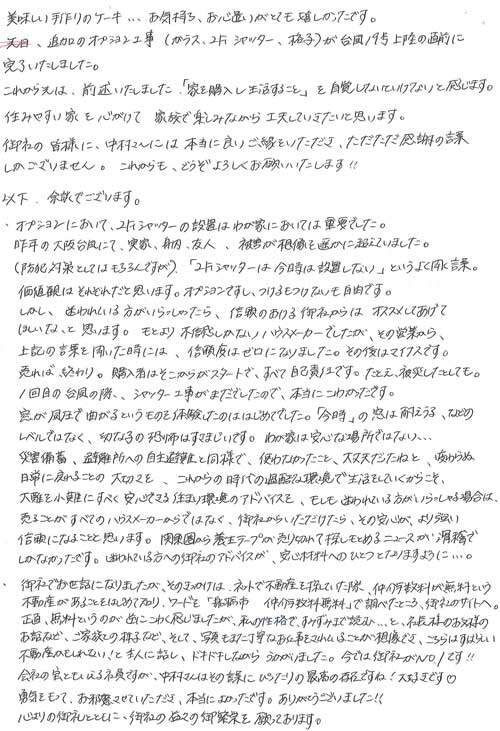 美味しい手作りのケーキ… お気持ち、お心遣いがとても嬉しかったです。
先日、追加のオプション工事(ガラス、2Fシャッター、格子)が台風19号上陸の直前に
完了いたしました。
これからは、前述いたしました「家を購入し生活すること」を自覚しないといけないと感じます。
住みやすい家を心がけて 家族で楽しみながら工夫していきたいと思います。
御社の皆様に、中村さんには本当に良いご縁をいただき、ただただ感謝の言葉
しかございません。これからも、どうぞよろしくお願いいたします!!
以下、余談でございます。
・オプションにおいて、2Fシャッターの設置はわが家においては重要でした。
昨年の大阪台風にて、実家、身内、友人、被害が想像を遥かに超えていました。
(防犯対策としてはもちろんですが)、「2Fシャッターは今時は設置しない」というよく聞く言葉。
価値観はそれぞれだと思います。オプションですし、つけるもつけないも自由です。
しかし、迷われている方がいらっしゃったら、信頼のおける御社からは オススメしてあげて
ほしいな、と思います。もとより不信感しかないハウスメーカーでしたが、その営業から、
上記の言葉を聞いた時には、信頼度はゼロになりました。その後はマイナスです。
売れば、終わり。購入者はそこからがスタートで、すべて自己責任です。たとえ、被災したとしても。
1回目の台風の際、シャッター工事がまだでしたので、本当にこわかったです。
窓が風圧で曲がるというものを体験したのははじめてでした。「今時」の窓は耐えうる、などの
レベルではなく、切なるの恐怖はすさまじいです。わが家は安心な場所ではない…
災害備蓄、避難所への自主避難と同様で、使わなかったこと、大丈夫だったねと、変わらぬ
日常に戻れることの 大切さを、これからの時代の過酷な環境で生活をしていくからこそ、
大難を小難にすべく安心できる住まい環境のアドバイスを、もしも迷われている方がいらっしゃる場合は、
売ることがすべてのハウスメーカーからではなく、御社からいただけたら、その安心が、より強い
信頼になることと思います。関東圏から養生テープが売り切れて探しもとめるニュースが滑稽で
しかなかったです。迷われている方への御社のアドバイスが、安心材料へのひとつとなりますように…。
・御社でお世話になりましたが、そのきっかけは、ネットで不動産を探していた際、仲介手数料が無料という
不動産があることをはじめて知り、ワードを「船橋市 仲介手数料無料」で調べたところ、御社のサイトへ。
正直、無料というのが逆にこわく感じましたが、私の性格で、すみずみまで読む…と、名民様のお客様の
お話など、ご家族との様子など、そして、写真もまた丁寧なお仕事をされていることが想像でき、こちらはすばらしい
不動産かもしれない!と主人に話し、ドキドキしながら うかがいました。今では御社がNO.1です!!
会社の宝ともいえる社員ですが、中村さんはその言葉にぴったりの最高の存在ですね!大好きです♡
勇気をもって、お邪魔させていただき、本当によかったです。ありがとうございました!!
心よりの御礼とともに、御社の益々の御繁栄を願っております。